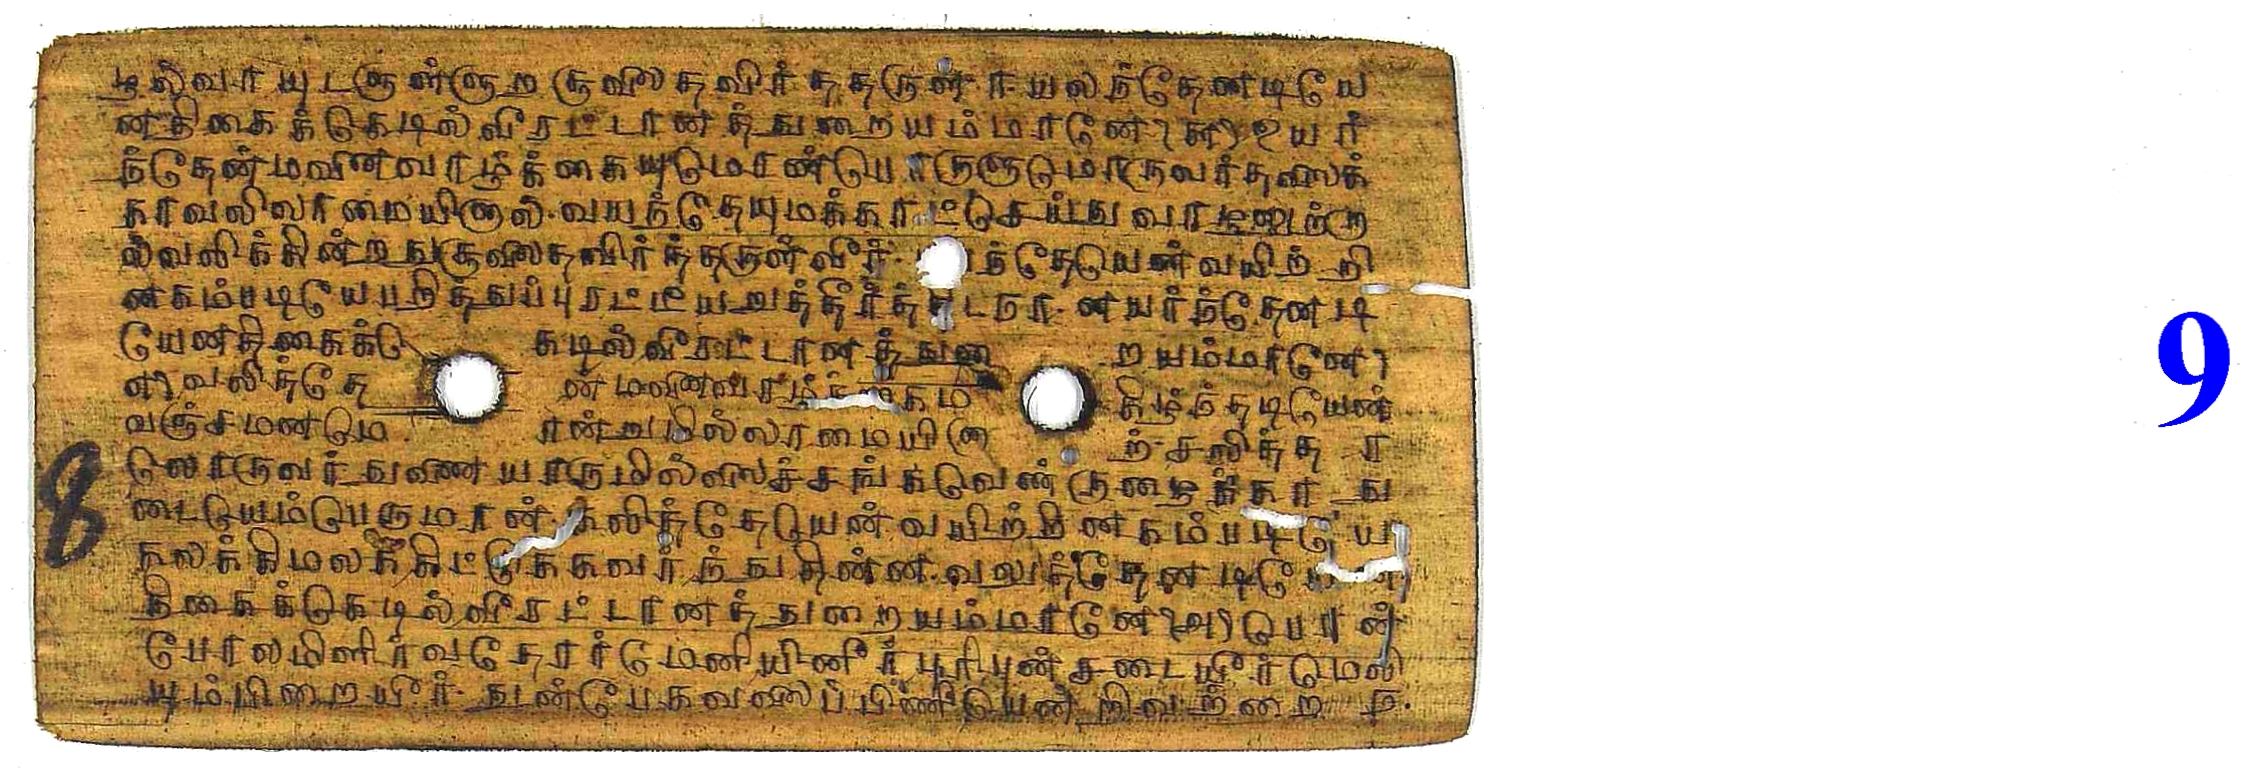 டில்வாயுடலுள்ளுறு சூலை தவிர்த்தருள்.ரயலந்தேனடியே
னதிகைக் கெடில் வீரட்டானத் துறையம்மானே ௭ உயர்
ந்தேன் மனைவாழ்க்கையுமொண்பொருளுமொருவர் தலைக்
காவலிலாமையினால். வயந்தேயுமக்காட்செய்து வாழலுற்றா
ல் வலிக்கின்றது சூலை தவிர்த்தருள்வீர். ந்தேயென் வயிற்றி
னகம்படியே பறித்துப் புரட்டியறுத்தீர்த்திடநா.னயர்ந்தேனடி
யேனதிகைக்கெ கெடில் வீரட்டானத்துறை றயம்மானே
வலித்தே ன் மனைவாழ்க்கை மகிழ்ந்தடியேன்
வஞ்சமனமொ ன்றுமில்லாமையினா ற்.சலித்தா
லொருவர் துணை யாருமில்லைச் சங்கவெண் குழைக்காது
டையெம்பெருமான். கலித்தேயென் வயிற்றினகம்படியே
கலக்கி மலக்கிட்டுக் கவர்ந்து தின்ன.வலுத்தேனடியேன
திகைக் கெடில் வீரட்டானத் துறையம்மானே ௮ பொன்
போல மிளிர்வதோர் மேனியினீர் புரிபுன் சடையீர் மெலி
யும்பிறையீர். துன்பே கவலைப் பிணியென் றிவற்றை
8
9